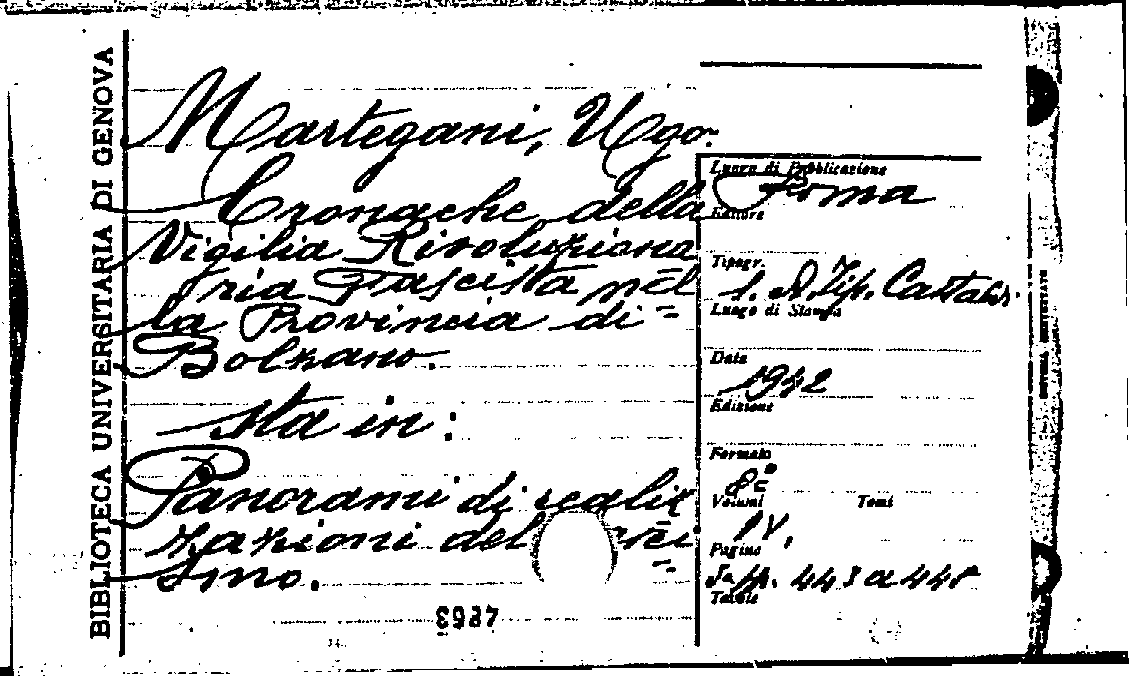 BIBLIOTECA UNIVERSITARIA DI GENOVA
Martegani, Ugo.
Cronache della
Vigilia Rivoluziona
ria Fascista nel
la Provincia di
Bolzano.
sta in:
Panorami di realiz
zazioni del
smo.
Luogo di Pubblicazione
Roma
Editore
Tipogr.
S. A. Tip. Castaldi
Luogo di Stampa
Data
1942
Edizione
Formato
8º
Volumi Tomi
IV,
Pagine
Da p. 443 a 448
Tavole